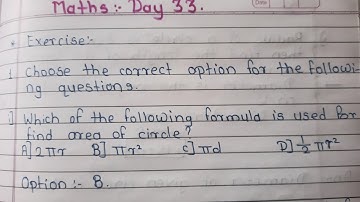 Maths:- Day 33.
* Exercise:-
1. Choose the correct option for the followi-
ng questions.
1] Which of the following formula is used for
find area of circle?
A] 2πr B] πr² C] πd D] 1/2 πr²
Option :- B.